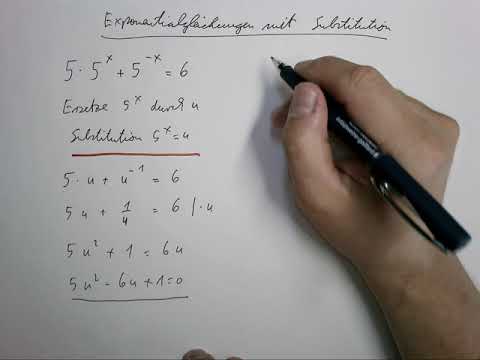 Exponentialgleichungen mit Substitution
5 · 5^x + 5^-x = 6
Ersetze 5^x durch u
Substitution 5^x = u
5 · u + u^-1 = 6
5u + 1/u = 6 | · u
5u² + 1 = 6u
5u² - 6u + 1 = 0